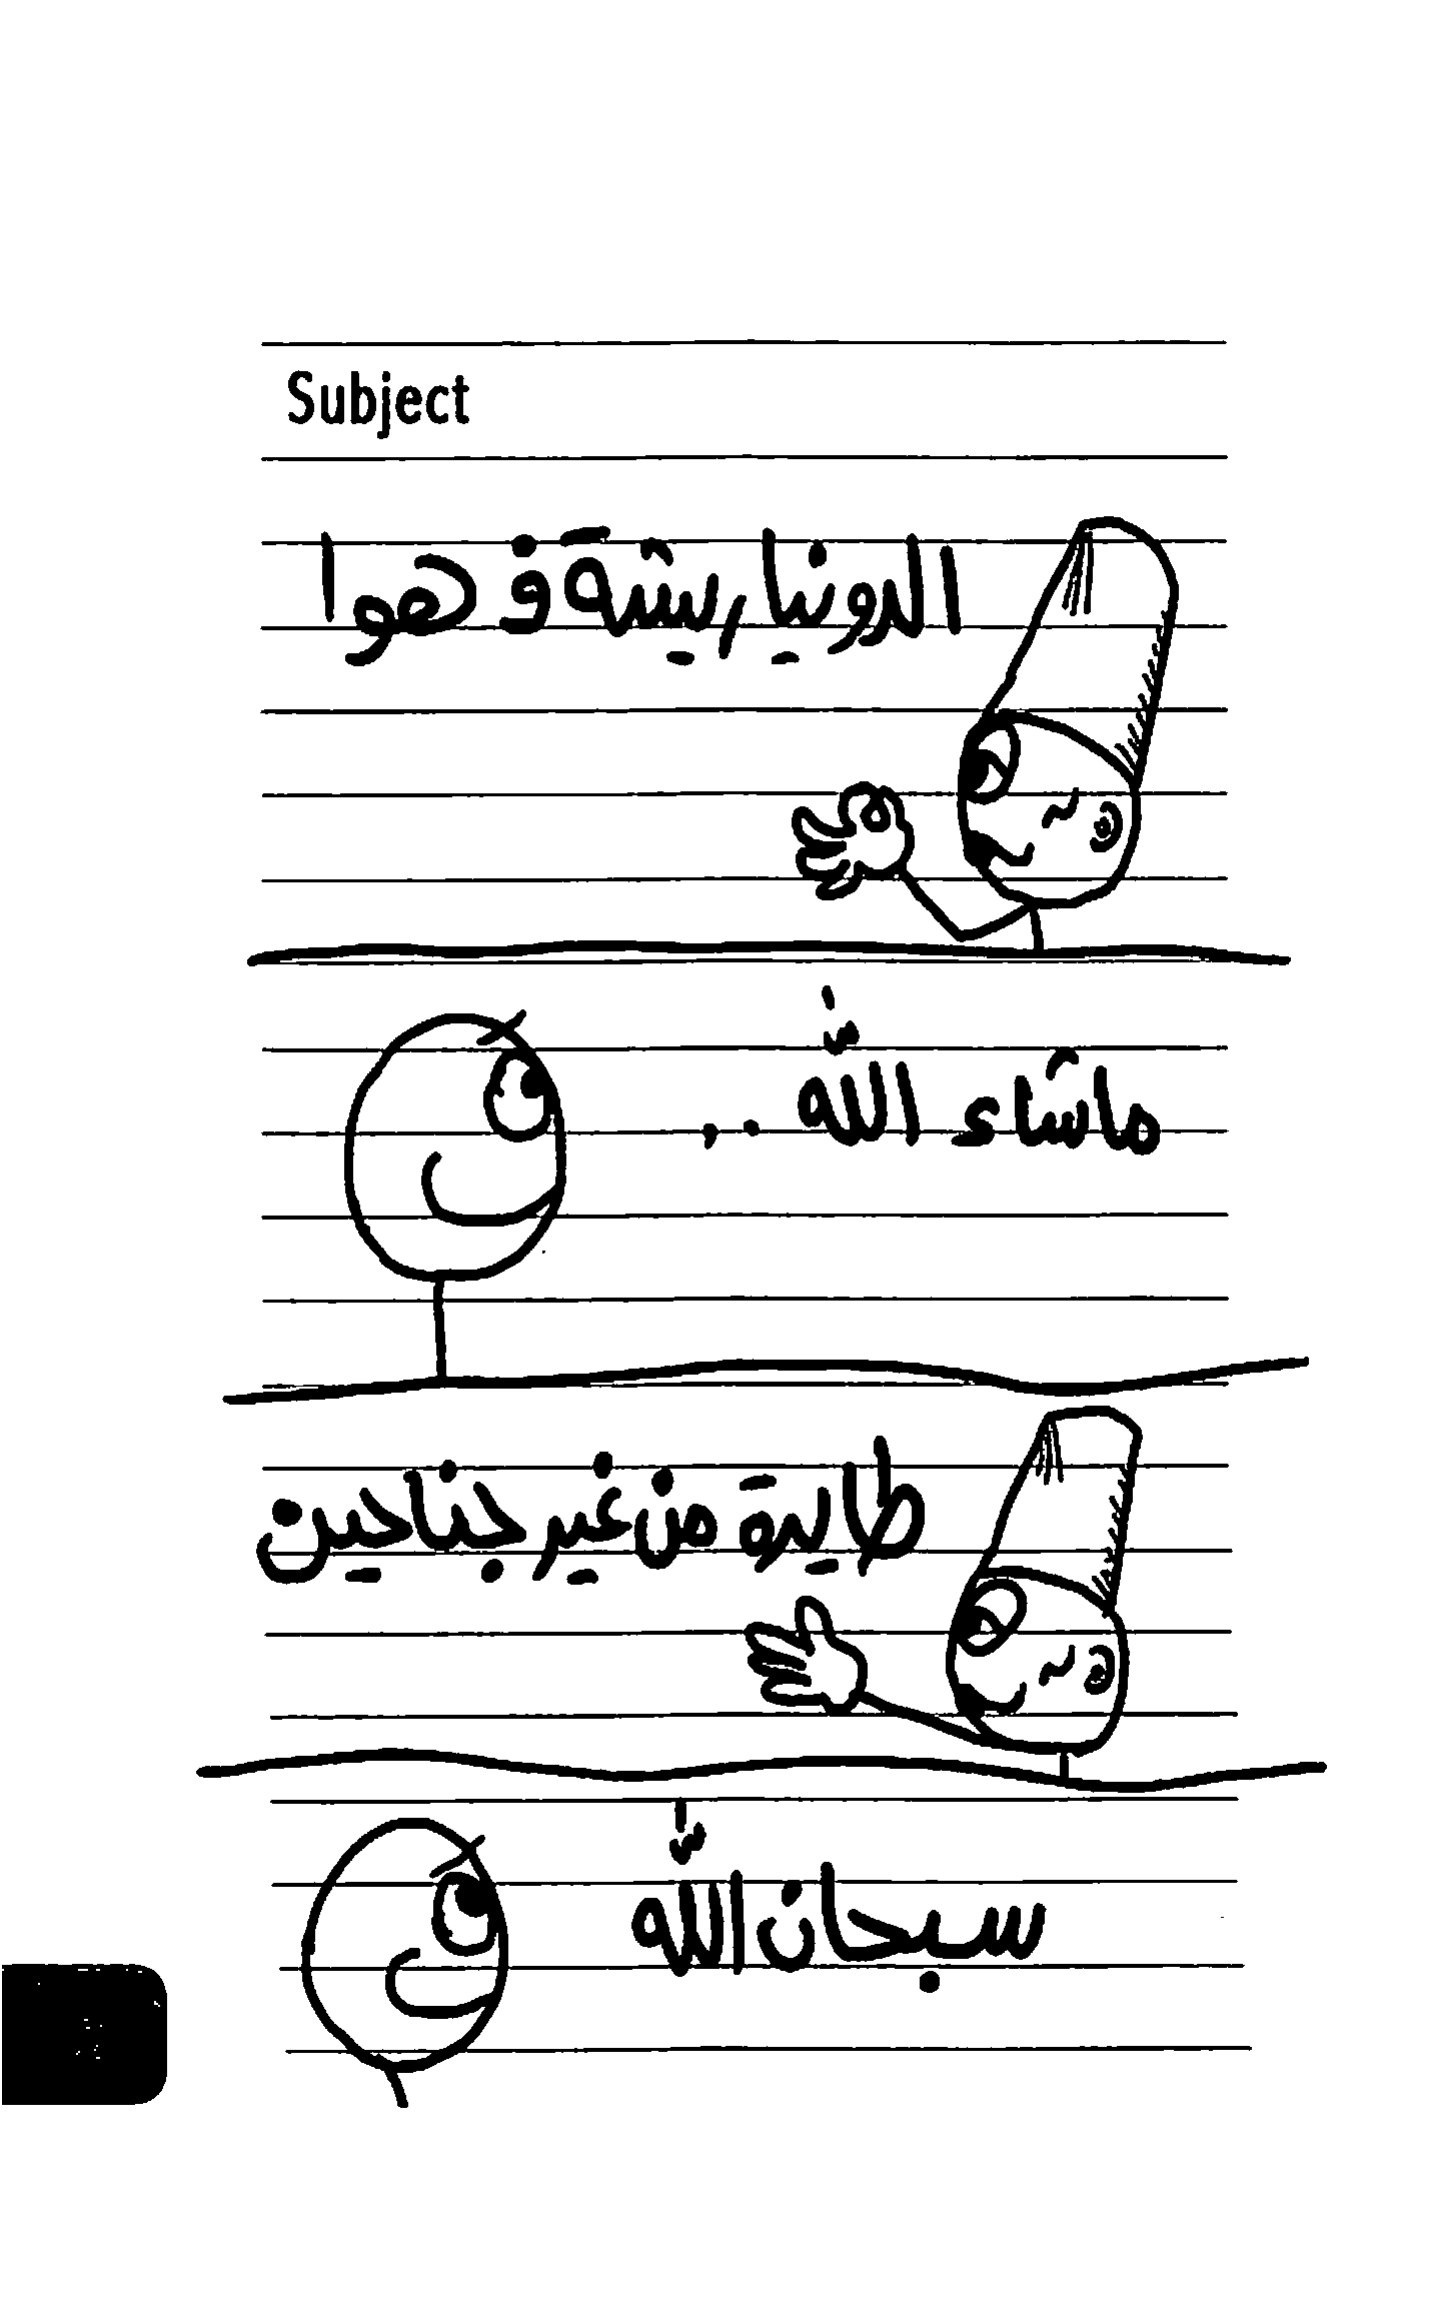 Subject
الدونيا ريشة ف هوا
ماشاء الله . .
طايرة من غير جناحين
سبحان الله